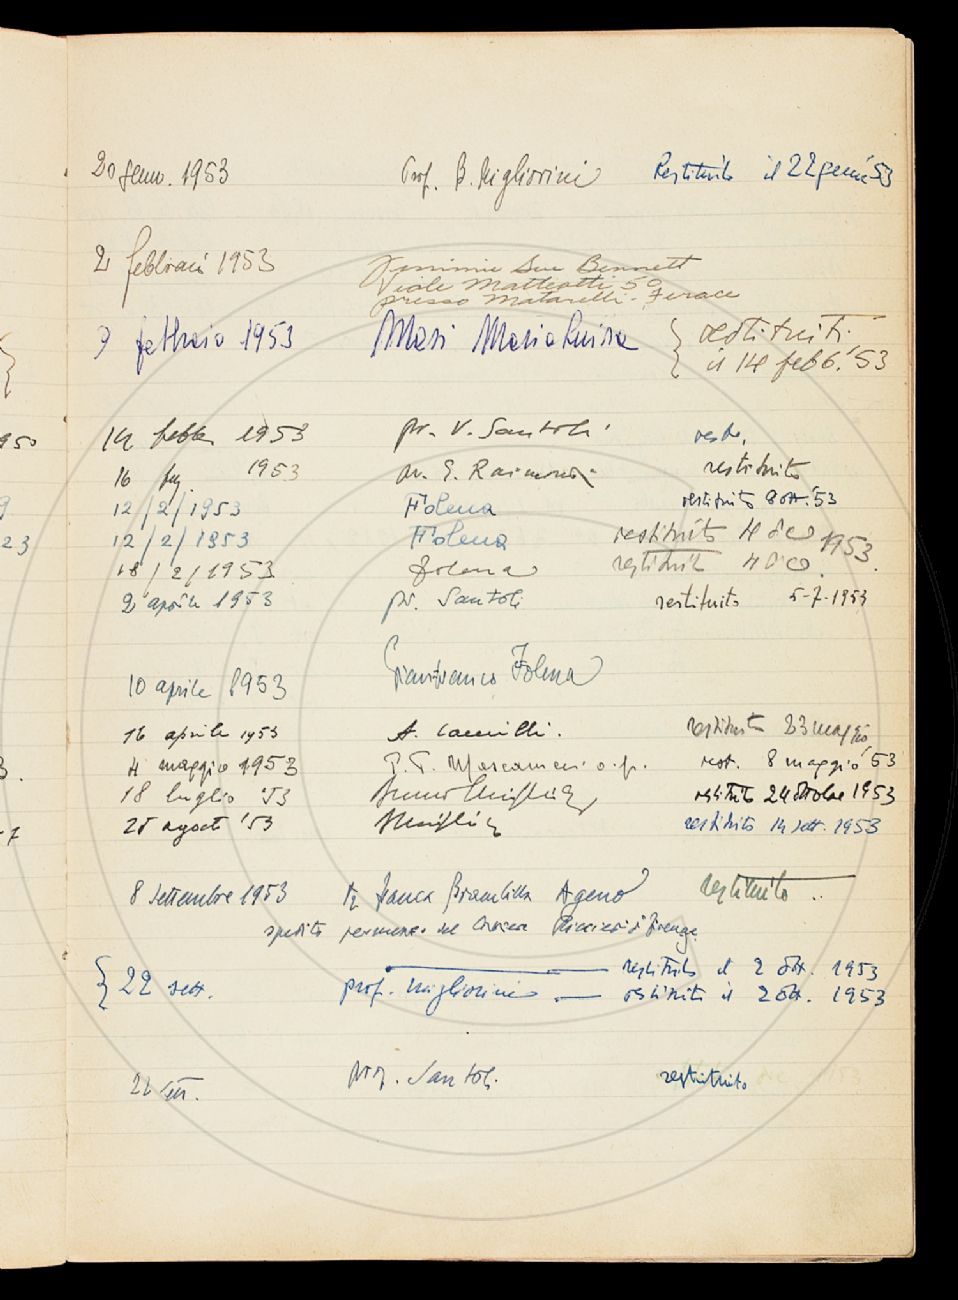 20 genn. 1953 Prof. B. Migliorini Restituito il 22 genn. '53
2 febbraio 1953 Sue Bennett
Viale Matteotti 50
presso Matarelli - Firenze
9 febbraio 1953 Masi Maria Luisa } restituiti
il 14 febb. '53
14 febbr. 1953 pr. V. Santoli rest.
16 1953 E. Raimondi restituito
12/2/1953 Folena restituito 8 ott. '53
12/2/1953 Folena restituito 4 dic. 1953.
18/2/1953 Folena restituito 4 dic.
2 aprile 1953 pr. Santoli restituito 5-7-1953
10 aprile 1953 Gianfranco Folena
16 aprile 1953 A. Camilli. restituito 23 maggio
4 maggio 1953 o.p. rest. 8 maggio '53
18 luglio '53 Bruno Migliorini restituito 24 ottobre 1953
25 agosto '53 restituito 14 sett. 1953
8 settembre 1953 Franca Brambilla Ageno restituito
spedito
restituito il 2 ott. 1953
{ 22 sett. prof. Migliorini — restituito il 2 ott. 1953
prof. Santoli restituito